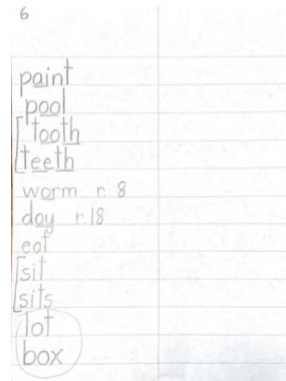 6
paint
pool
tooth
teeth
worm r. 8
day r. 18
eat
sit
sits
lot
box